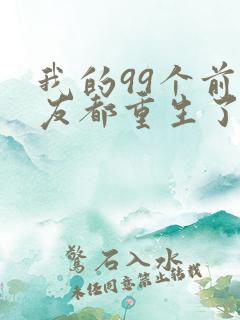 我的99个前
友都重生了
惊石入水
未经同意禁止转载